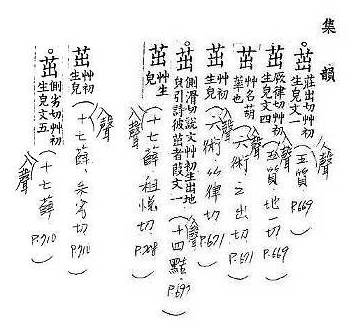 集韻
茁 莊出切艸初生皃文一 (入聲)(五質 P.669)
茁 厥律切艸初生皃文四 (入聲)(五質・地一切 P.669)
茁 艸名葫也 (入聲)(六術之出切 P.671)
茁 艸初生皃 (入聲)(六術竹律切 P.671)
茁 側滑切說文艸初生出地皃引詩彼茁者葭文一 (入聲)(十四黠 P.693)
茁 艸生皃 (入聲)(十七薛・租悅切 P.708)
茁 艸初生皃 (入聲)(十七薛・朱劣切 P.710)
茁 側劣切艸初生皃文五 (入聲)(十七薛 P.710)